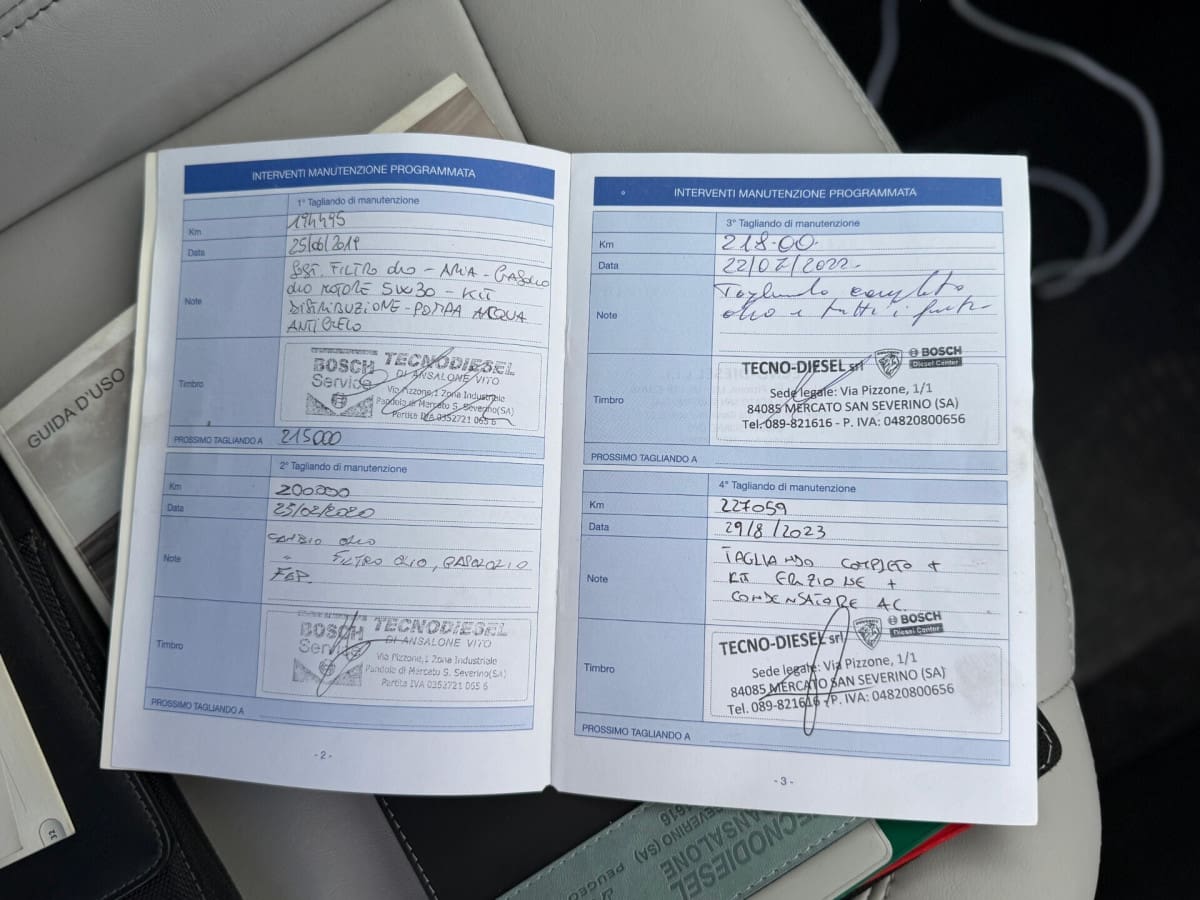 GUIDA D'USO
INTERVENTI MANUTENZIONE PROGRAMMATA
1° Tagliando di manutenzione
Km 194495
Data 25/06/2019
Note
SOST. FILTRO OLIO - ARIA - GASOLIO
OLIO MOTORE 5W30 - KIT
DISTRIBUZIONE - POMPA ACQUA
ANTIGELO
Timbro
BOSCH TECNODIESEL
Service DI ANSALONE VITO
Via Pizzone,1 Zona Industriale
Pandola di Mercato S. Severino(SA)
Partita IVA 0352721 065 6
PROSSIMO TAGLIANDO A 215000
2° Tagliando di manutenzione
Km 200000
Data 25/02/2020
Note
CAMBIO OLIO
" FILTRO OLIO, GASOLIO
Timbro
BOSCH TECNODIESEL
Service DI ANSALONE VITO
Via Pizzone,1 Zona Industriale
Pandola di Mercato S. Severino(SA)
Partita IVA 0352721 065 6
PROSSIMO TAGLIANDO A
- 2 -
INTERVENTI MANUTENZIONE PROGRAMMATA
3° Tagliando di manutenzione
Km 218.00.
Data 22/07/2022.
Note
Tagliando completo
olio e tutti i filtri
Timbro
TECNO-DIESEL srl BOSCH
Diesel Center
Sede legale: Via Pizzone, 1/1
84085 MERCATO SAN SEVERINO (SA)
Tel. 089-821616 - P. IVA: 04820800656
PROSSIMO TAGLIANDO A
4° Tagliando di manutenzione
Km 227059
Data 29/8/2023
Note
TAGLIANDO COMPLETO +
KIT +
CONDENSATORE AC.
Timbro
TECNO-DIESEL srl BOSCH
Diesel Center
Sede legale: Via Pizzone, 1/1
84085 MERCATO SAN SEVERINO (SA)
Tel. 089-821616 - P. IVA: 04820800656
PROSSIMO TAGLIANDO A
- 3 -
32
TECNODIESEL
ANSALONE
SEVERINO (SA)
1616
PEUGEO